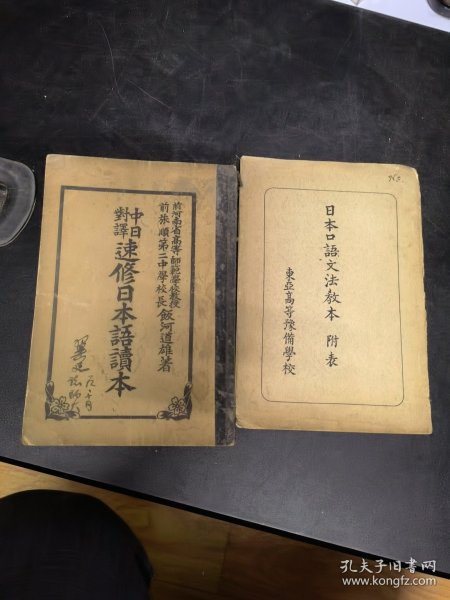 前河南省高等師範學校教授
前旅順第二中學校長 飯河道雄著
中日
對譯
速修日本語讀本
日本口語文法教本 附表
東亞高等豫備學校
孔夫子旧书网
www.kongfz.com